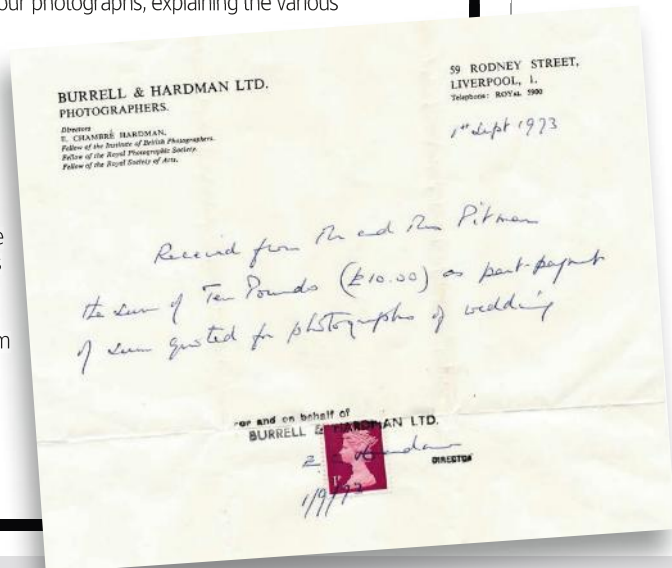 our photographs, explaining the various
BURRELL & HARDMAN LTD.
PHOTOGRAPHERS.
Directors
E. CHAMBRÉ HARDMAN,
Fellow of the Institute of British Photographers.
Fellow of the Royal Photographic Society.
Fellow of the Royal Society of Arts.
59 RODNEY STREET,
LIVERPOOL, 1.
Telephone: ROYAL 5900
1st Sept 1973
Received from Mr and Mrs Pitman
the sum of Ten Pounds (£10.00) as part-payment
of sum quoted for photographs of wedding
or and on behalf of
BURRELL & HARDMAN LTD.
DIRECTOR
1/9/73